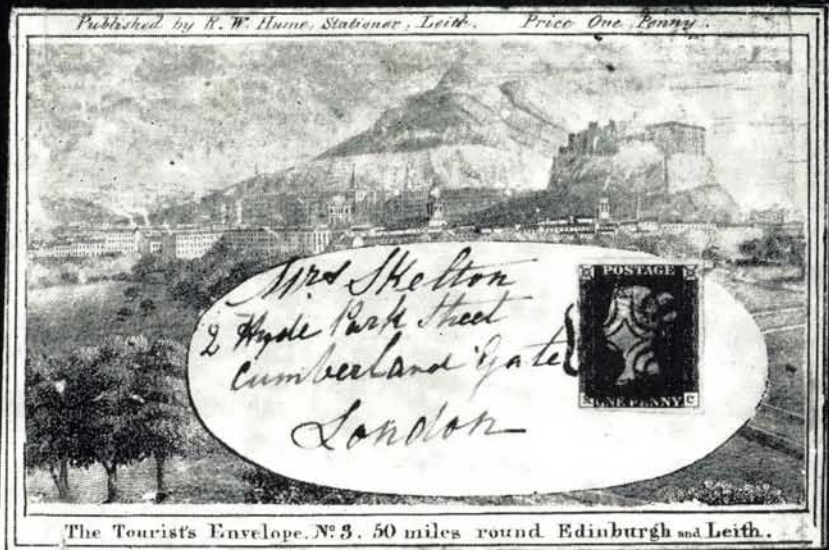 Published by R. W. Hume, Stationer, Leith. Price One Penny.
Mrs Skelton
2 Hyde Park Street
Cumberland Gate
London
POSTAGE
ONE PENNY
C
The Tourist's Envelope. No. 3. 50 miles round Edinburgh and Leith.